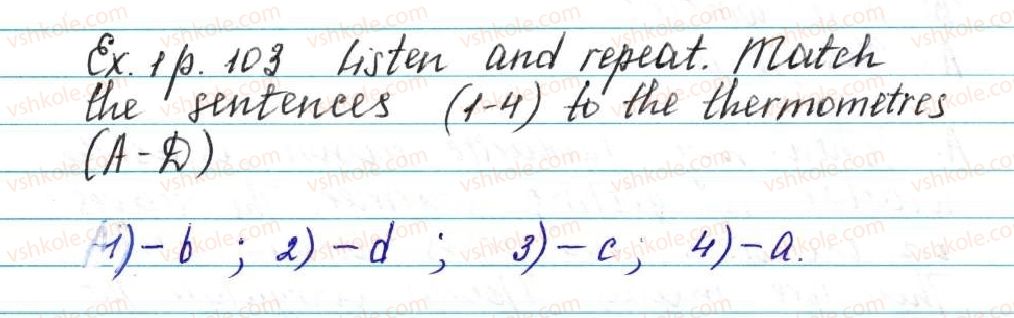 Ex. 1 p. 103 Listen and repeat. Match
the sentences (1-4) to the thermometres
(A-D)
1) - b ; 2) - d ; 3) - c; 4) - a.